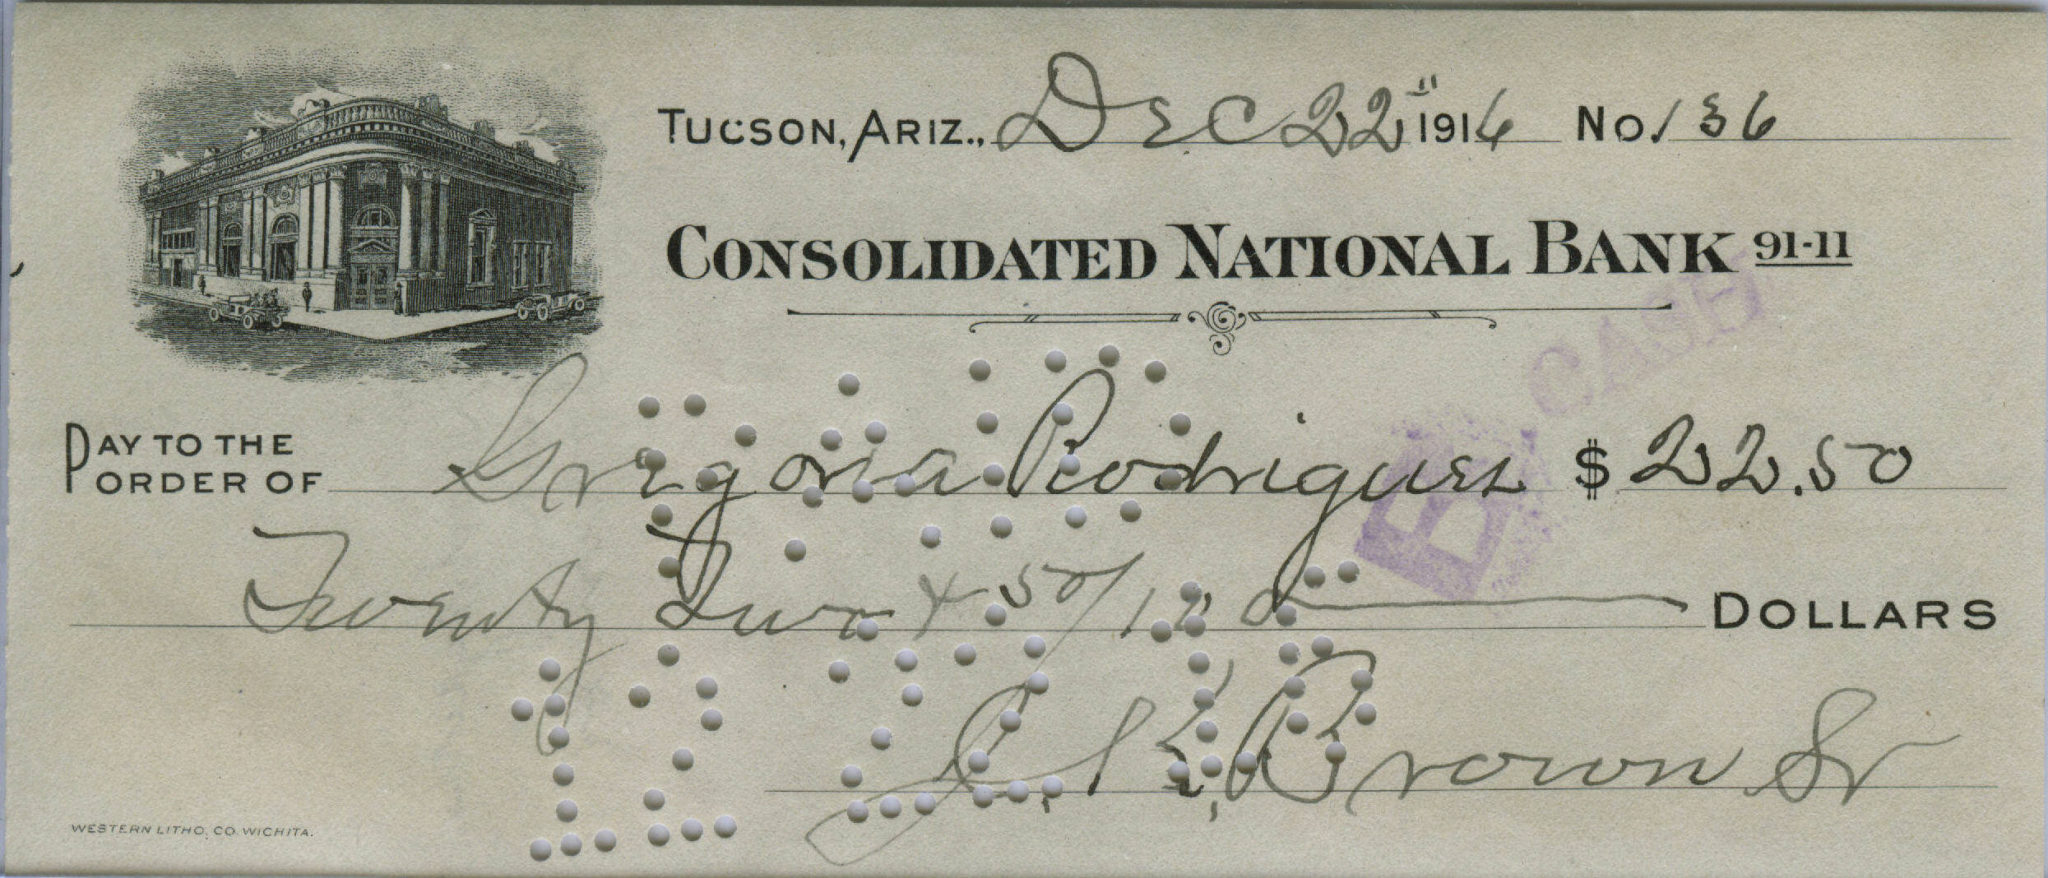 TUCSON, ARIZ., Dec 22" 1916 No. 136
CONSOLIDATED NATIONAL BANK 91-11
CASH
B
PAY TO THE ORDER OF Gregoria Rodriguez $ 22.50
Twenty Two + 50/100 DOLLARS
PAID
12 22 16
Brown Sr
WESTERN LITHO. CO. WICHITA.